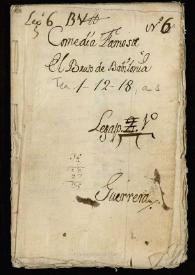 Leg.º 6 BV Nº 6
Comedia Famosa
El Bruto de Babilonia
Tea 1-12-18, a 3
Legajo 2º
Guerrero